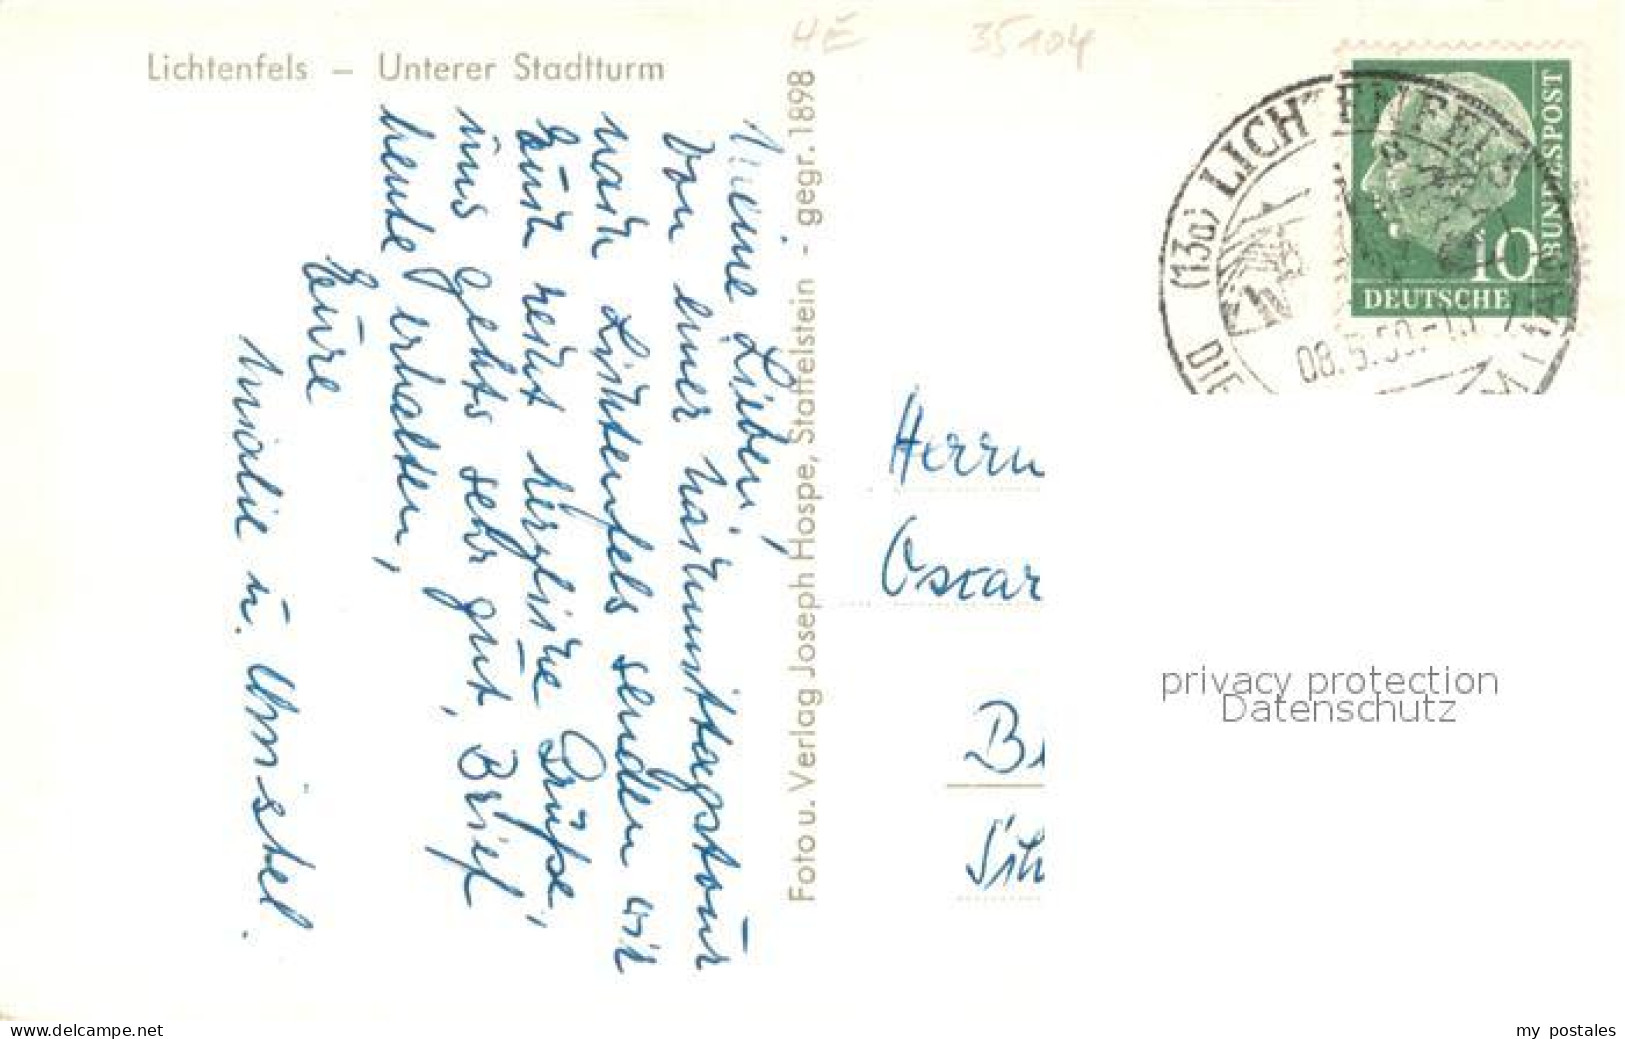 Lichtenfels – Unterer Stadtturm
HE 35104
Meine Lieben,
Von einer Nachmittagstour
nach Lichtenfels senden wir
Euch recht herzliche Grüße,
uns gehts sehr gut, Brief
heute erhalten,
Eure
u. Christel.
Foto u. Verlag Joseph Hospe, Staffelstein - gegr. 1898
(13a) LICHTENFELS
DIE
08.5.
10
DEUTSCHE
BUNDESPOST
Herrn
Oscar
privacy protection
Datenschutz
www.delcampe.net
my postales